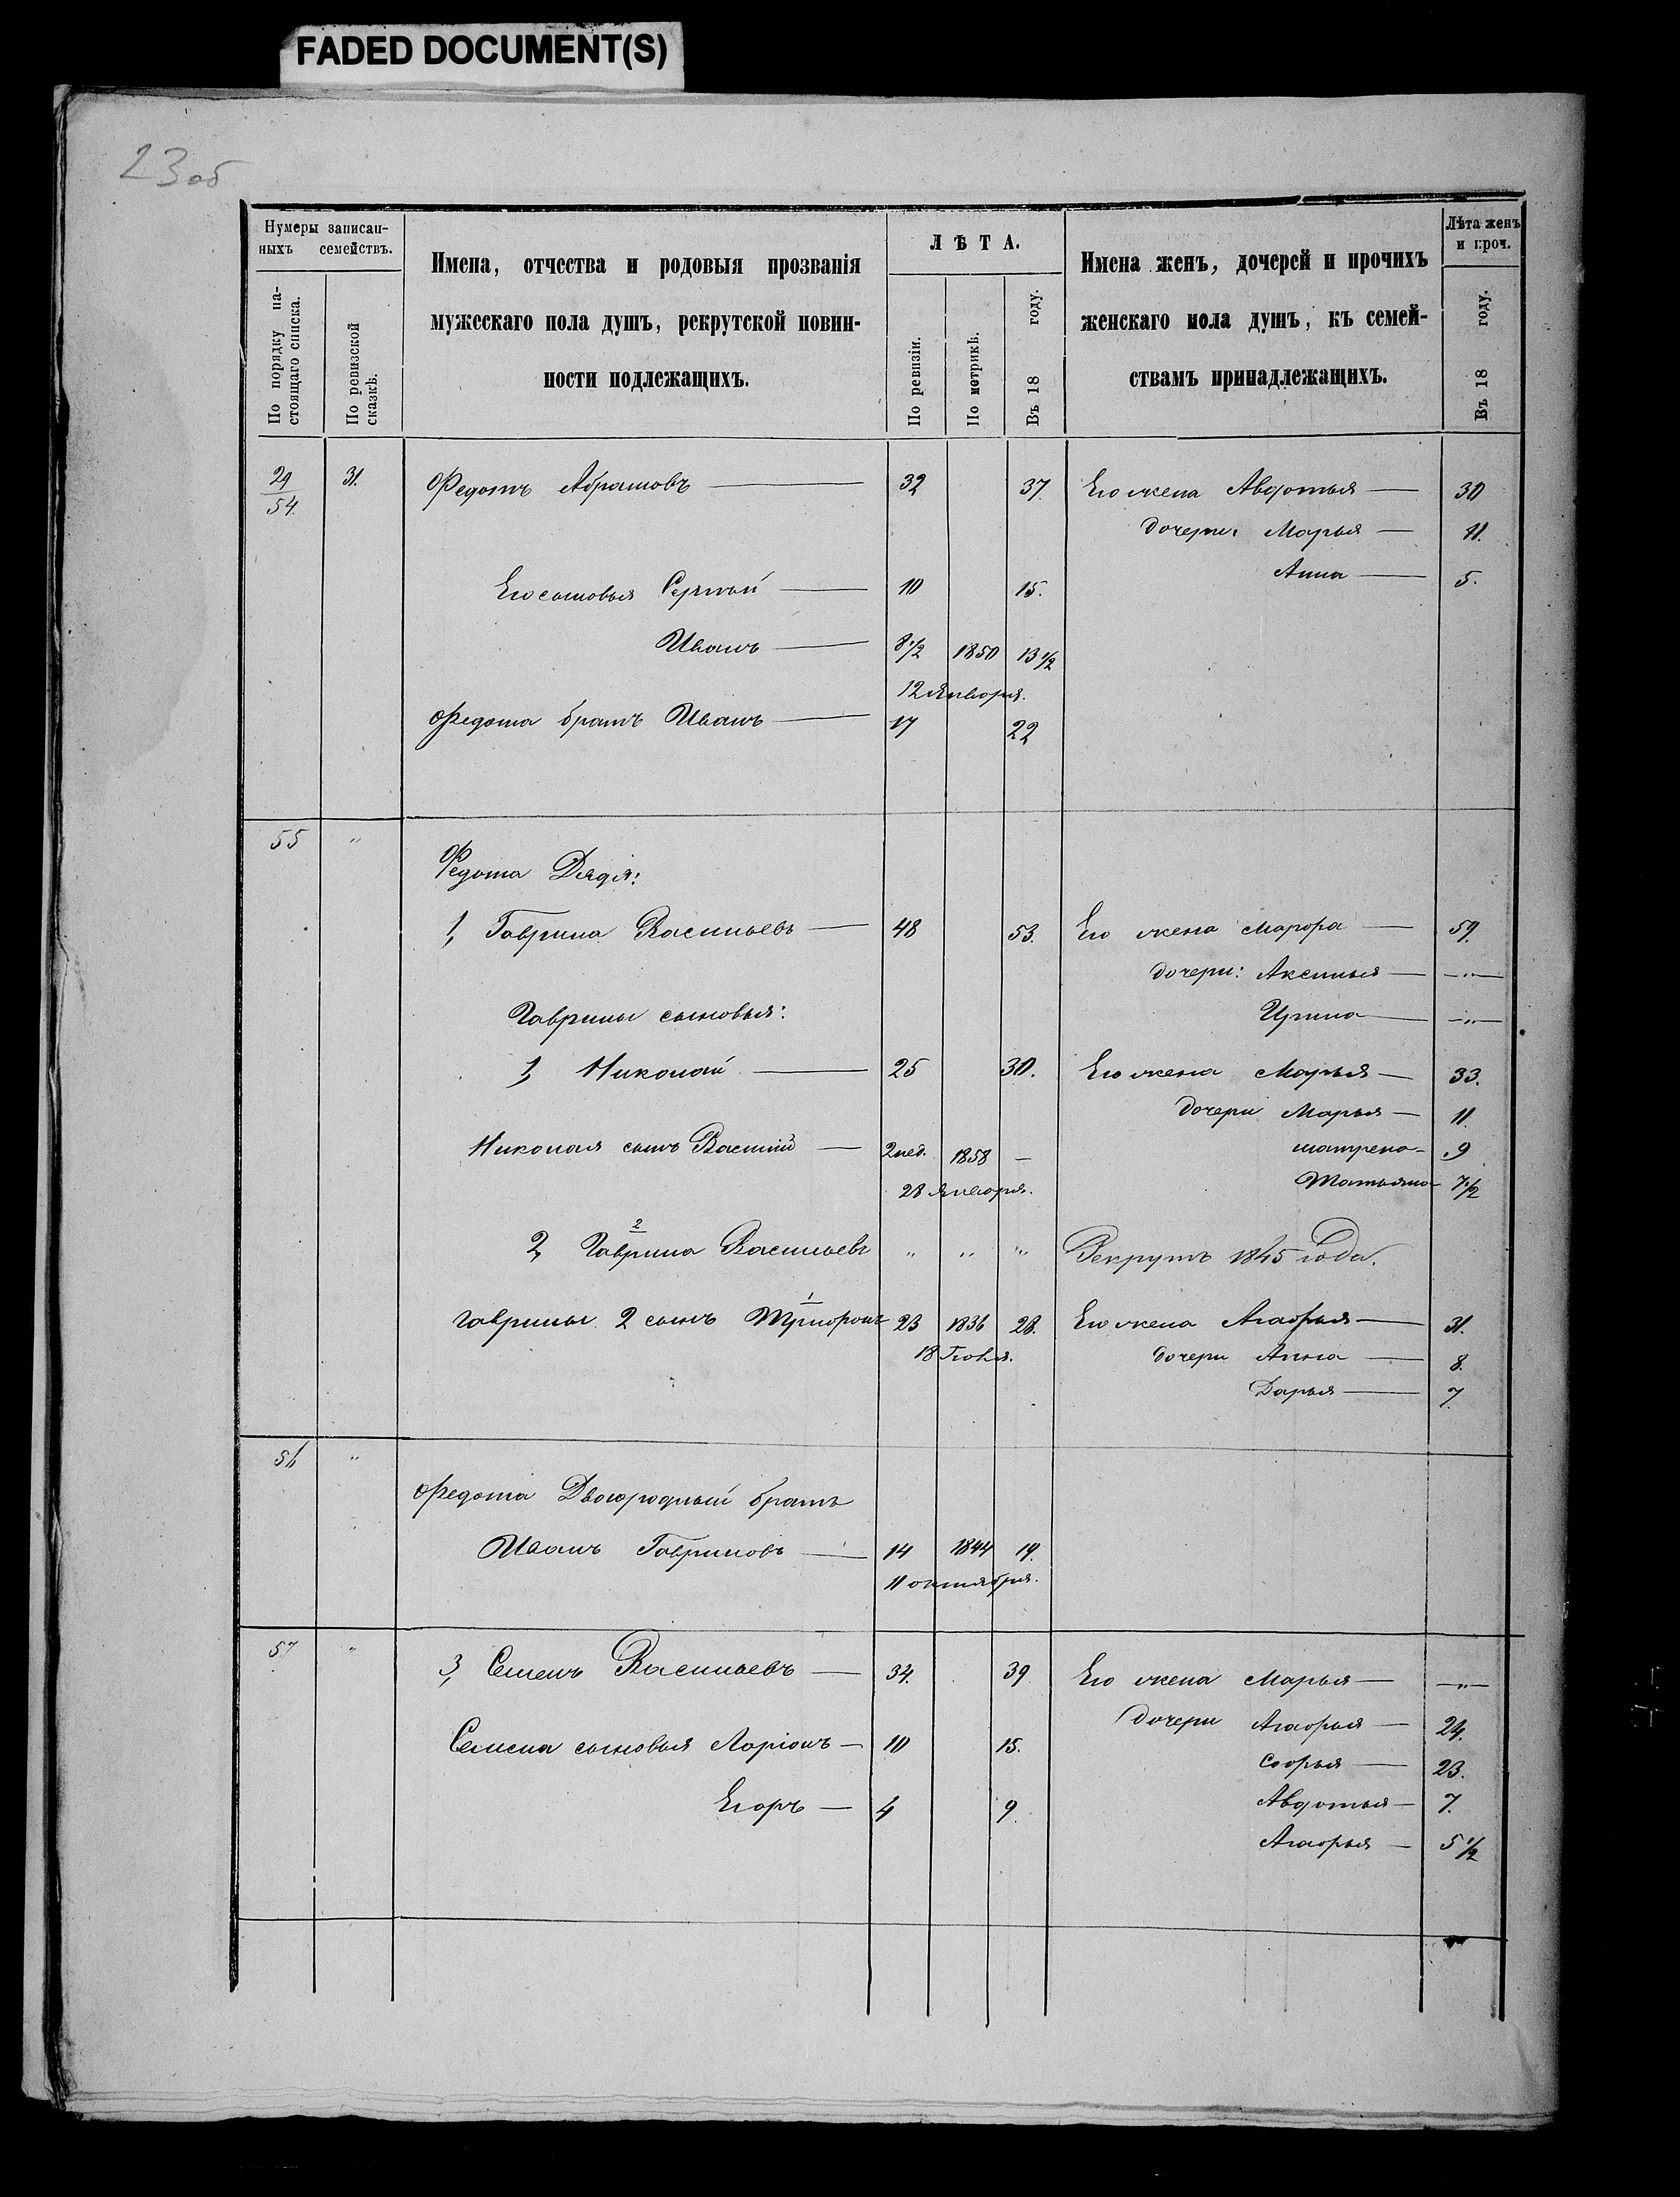 FADED DOCUMENT(S)
23 об
Нумеры записан-
ныхъ семействъ.
По порядку на-
стоящаго списка.
По ревизской
сказкѣ.
Имена, отчества и родовыя прозванія
мужескаго пола душъ, рекрутской повин-
ности подлежащихъ.
ЛѢТА.
По ревизіи.
По метрикѣ.
Въ 18 году.
Имена женъ, дочерей и прочихъ
женскаго пола душъ, къ семей-
ствамъ принадлежащихъ.
Лѣта женъ
и проч.
Въ 18 году.
29/54. 31. Федотъ Абрамовъ — 32 37. Его жена Авдотья — 30
дочери: Марья — 11.
Анна — 5.
Его сыновья Сергѣй — 10 15.
Иванъ — 8 1/2 1850 13 1/2
12 Января.
Федота братъ Иванъ — 17 22
55 "
Федота Дядя:
1, Гаврила Васильевъ — 48 53. Его жена Марфа — 59.
дочери: Аксинья — "
Ирина — "
Гаврилы сыновья:
1, Николай — 25 30. Его жена Марья — 33.
дочери Марья — 11.
Николая сынъ Василій — 2 нед. 1858 — матрена — 9
28 Января. Татьяна 7 1/2
2, Гаврила 2 Васильевъ " " " Рекрутъ 1845 года.
Гаврилы 2 сынъ Трифонъ 1 23 1836 28. Его жена Агафья — 31.
18 Іюня. дочери Анна — 8.
Дарья — 7.
56 "
Федота Двоюродный братъ
Иванъ Гавриловъ — 14 1844 19.
11 октября.
57 " 3, Семенъ Васильевъ — 34. 39 Его жена Марья — "
дочери Агафья — 24.
Семена сыновья Ларіонъ — 10 15.
Софья — 23.
Егоръ — 4 9. Авдотья — 7.
Агафья — 5 1/2